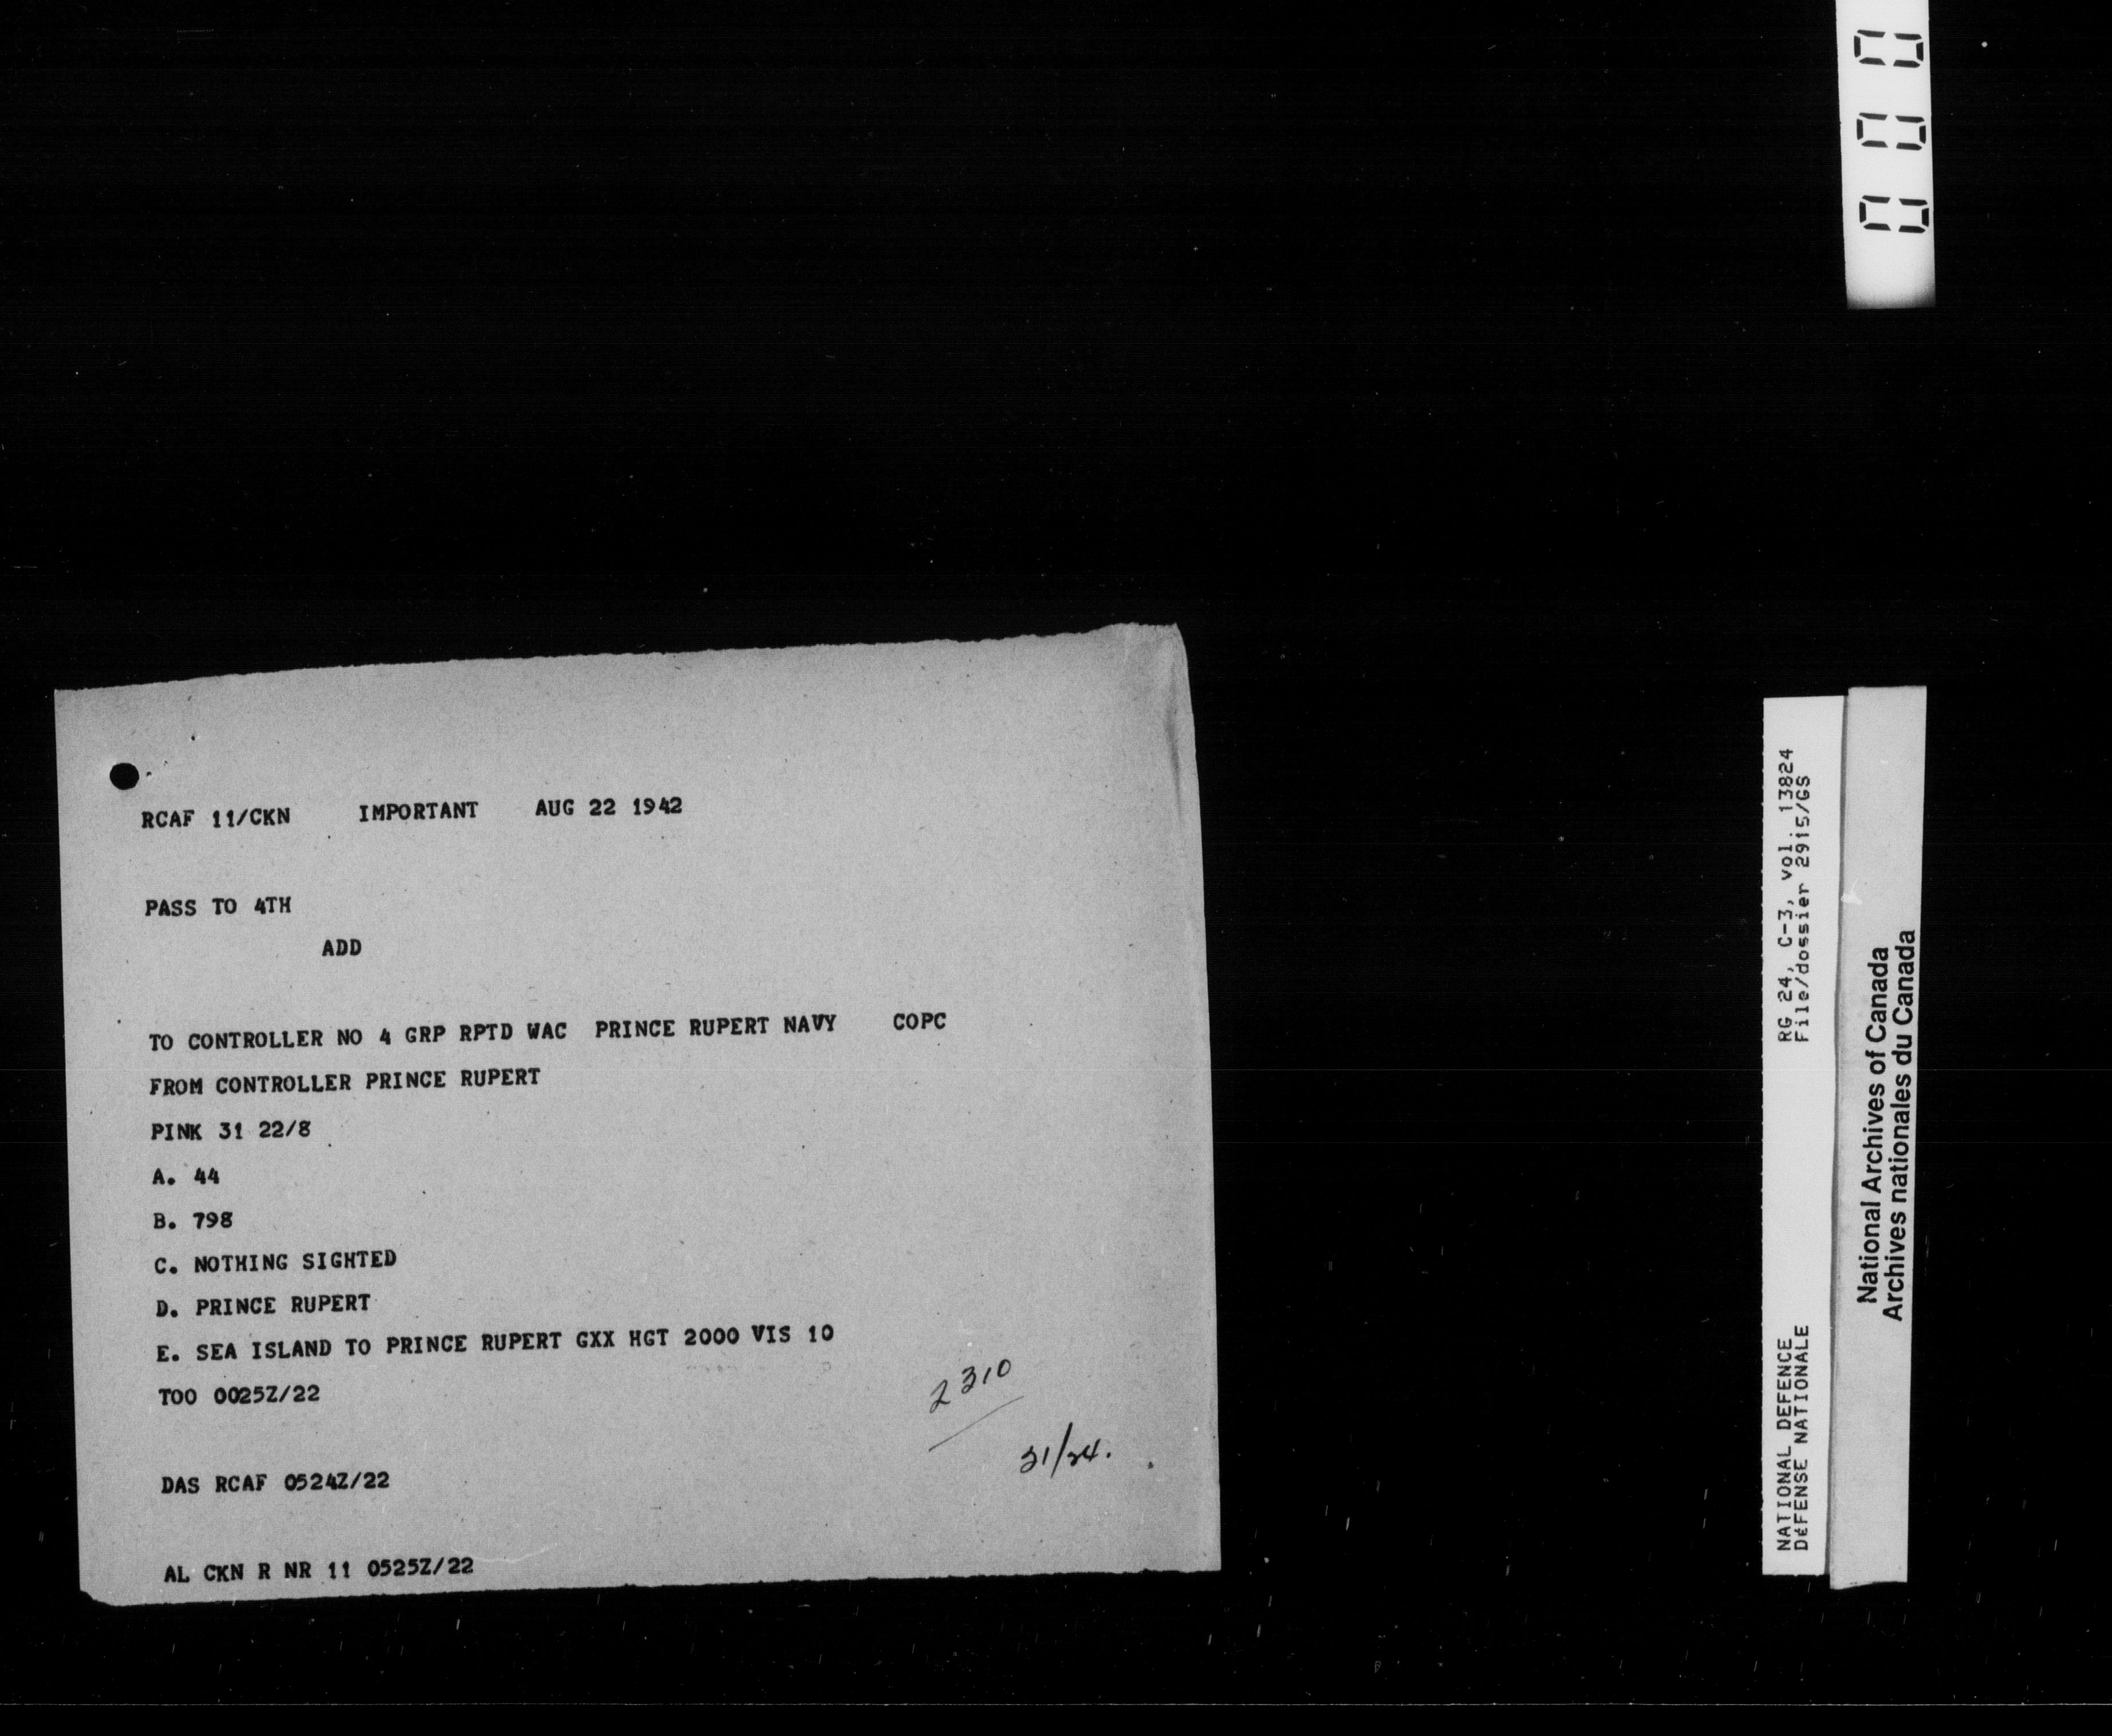 RCAF 11/CKN IMPORTANT AUG 22 1942
PASS TO 4TH
ADD
TO CONTROLLER NO 4 GRP RPTD WAC PRINCE RUPERT NAVY COPC
FROM CONTROLLER PRINCE RUPERT
PINK 31 22/8
A. 44
B. 798
C. NOTHING SIGHTED
D. PRINCE RUPERT
E. SEA ISLAND TO PRINCE RUPERT GXX HGT 2000 VIS 10
TOO 0025Z/22
2310
31/24.
DAS RCAF 0524Z/22
AL CKN R NR 11 0525Z/22
000
RG 24, C-3, vol. 13824
File/dossier 2915/GS
NATIONAL DEFENCE
DéFENSE NATIONALE
National Archives of Canada
Archives nationales du Canada